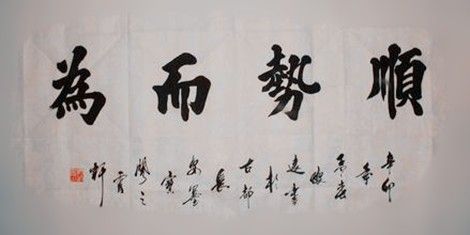 順勢而為
辛卯
年
孟春
書
於
古都
長
安墨
寶
閣之
軒